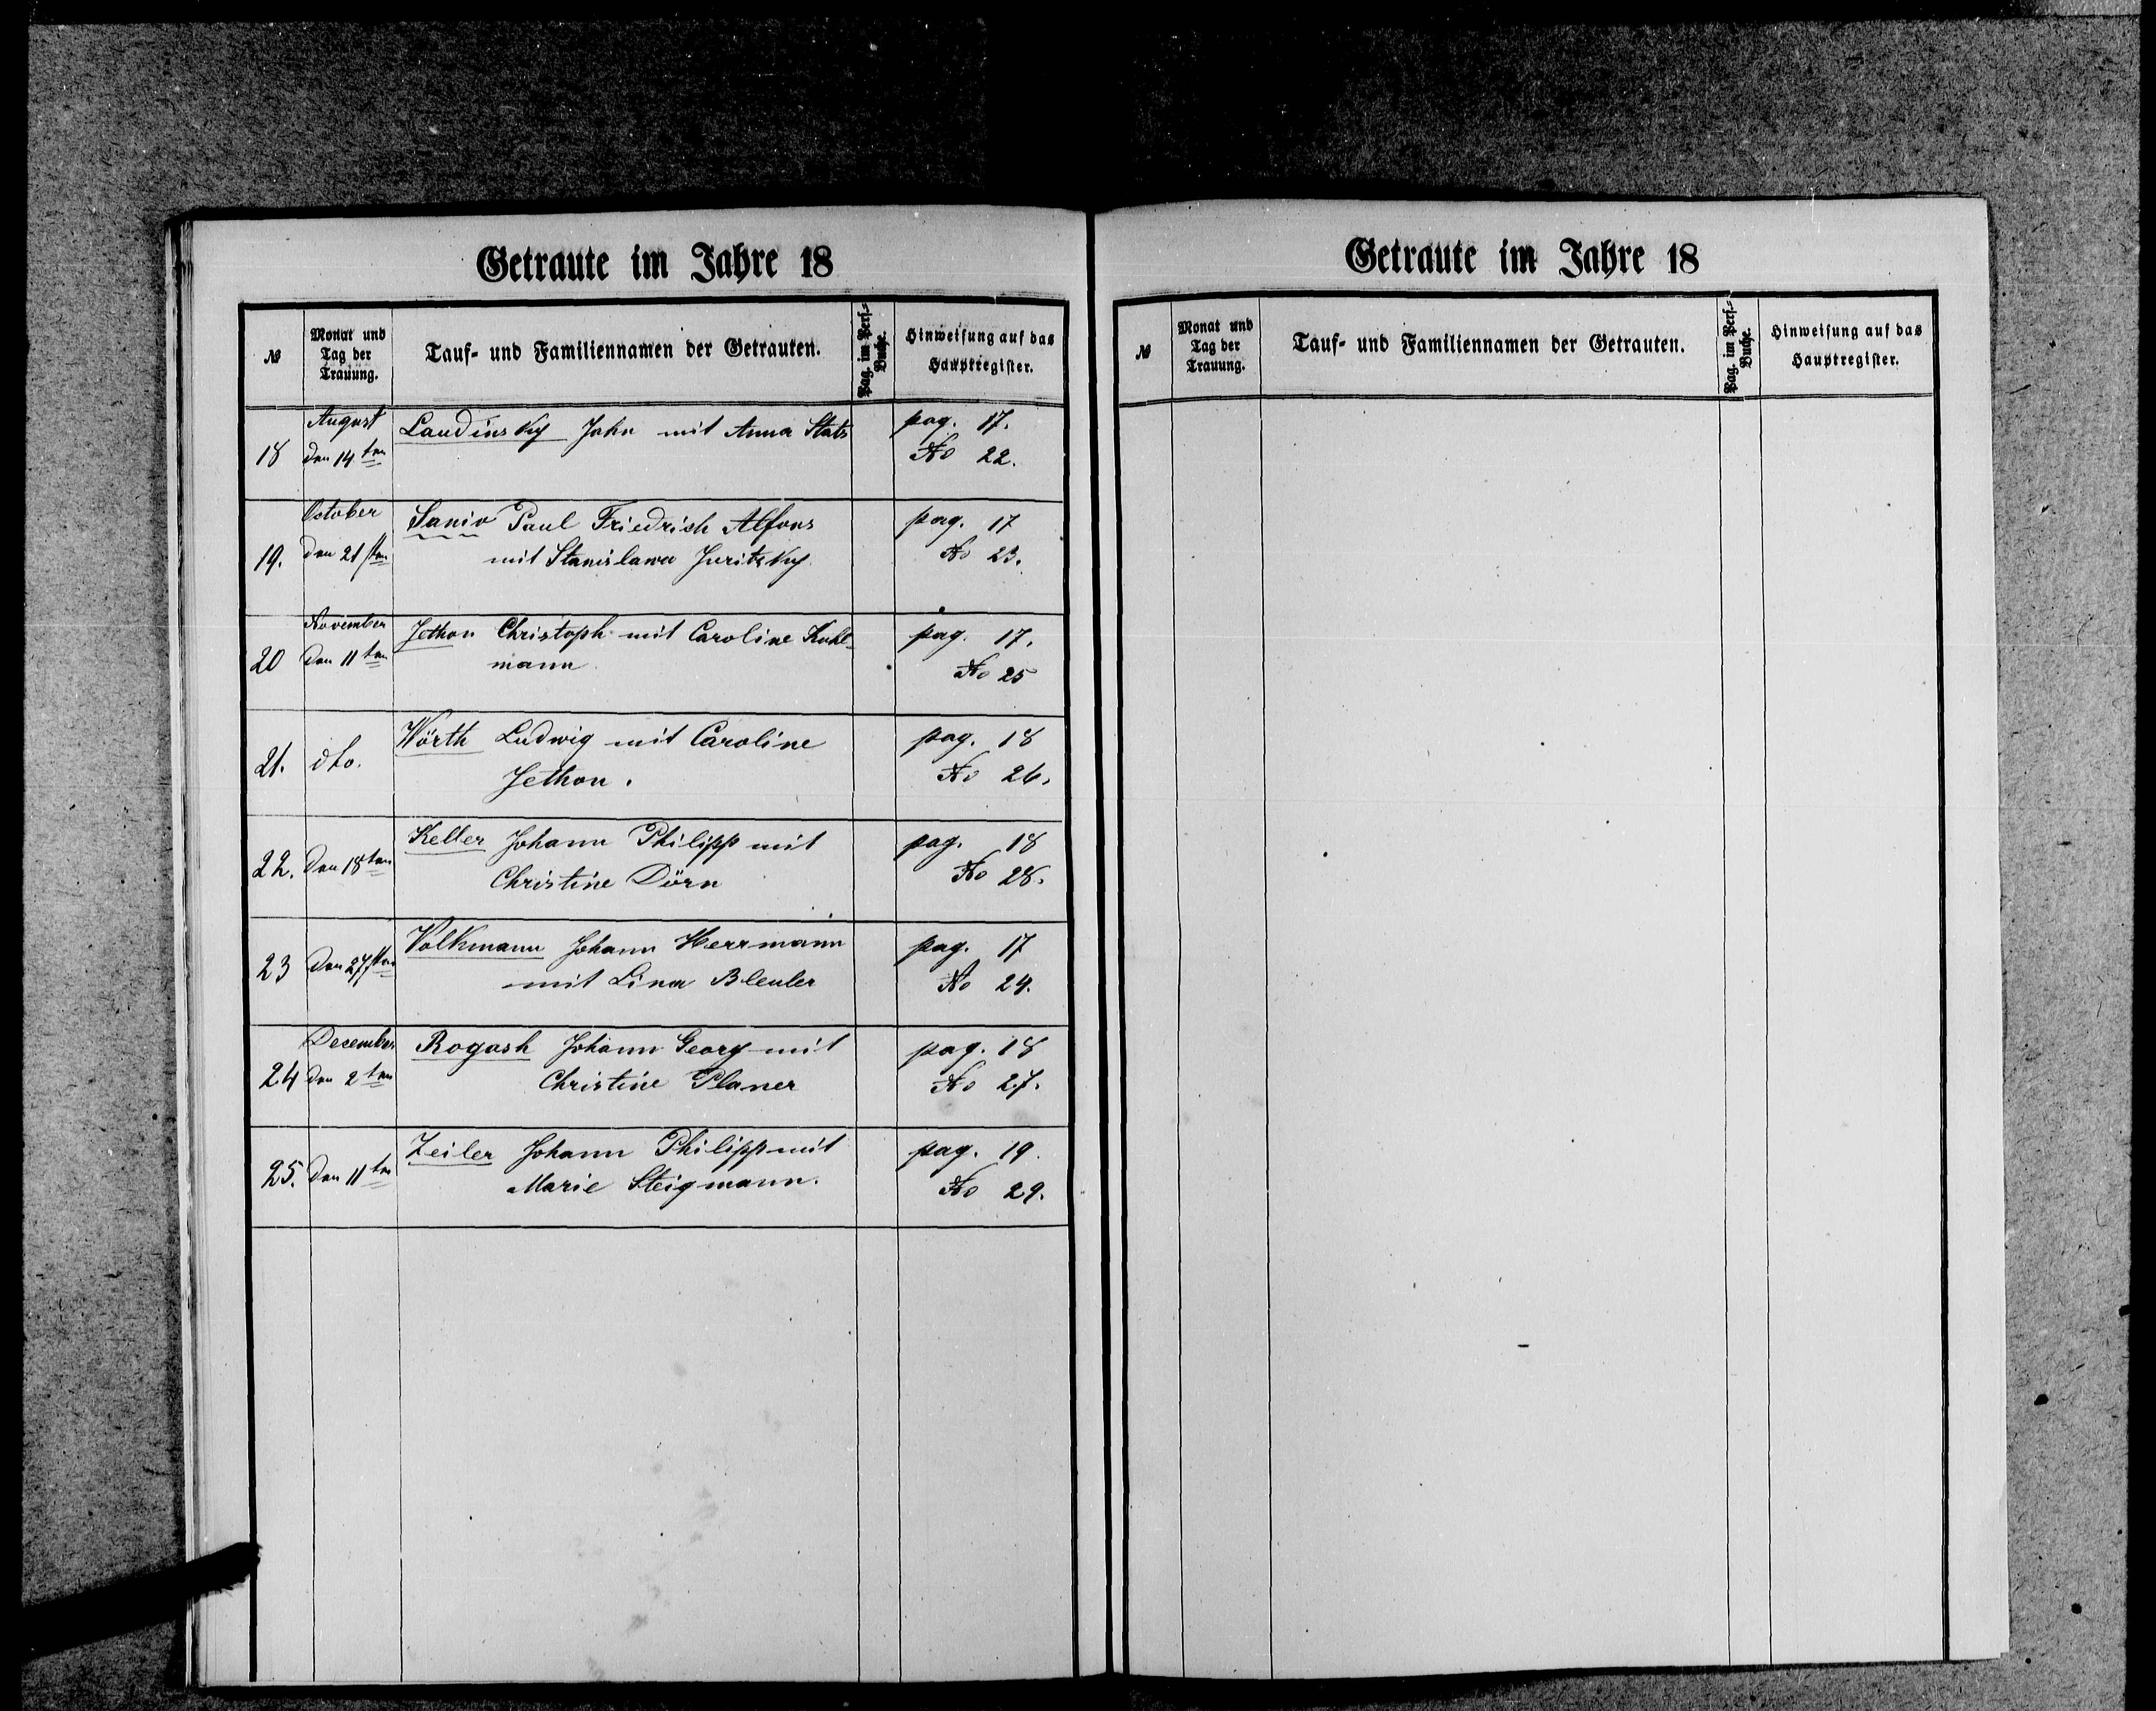 Getraute im Jahre 18
№
Monat und
Tag der
Trauung.
Tauf- und Familiennamen der Getrauten.
Pag. im Pers.-
Buche.
Hinweisung auf das
Hauptregister.
18
August
den 14ten
Laudinsky John mit Anna Stats
pag. 17.
No 22.
19.
October
den 21sten
Sanio Paul Friedrich Alfons
mit Stanislawa Juritzky
pag. 17
No 23.
20
November
den 11ten
Jethon Christoph mit Caroline Kuhl-
mann
pag. 17.
No 25
21.
dto.
Wörth Ludwig mit Caroline
Jethon.
pag. 18
No 26.
22.
den 18ten
Keller Johann Philipp mit
Christine Dörn
pag. 18
No 28.
23
den 27sten
Volkmann Johann Herrmann
mit Lina Bleuler
pag. 17
No 24.
24
December
den 2ten
Rogash Johann Georg mit
Christine Planer
pag. 18
No 27.
25.
den 11ten
Zeiler Johann Philipp mit
Marie Steigmann.
pag. 19.
No 29.
Getraute im Jahre 18
№
Monat und
Tag der
Trauung.
Tauf- und Familiennamen der Getrauten.
Pag. im Pers.-
Buche.
Hinweisung auf das
Hauptregister.